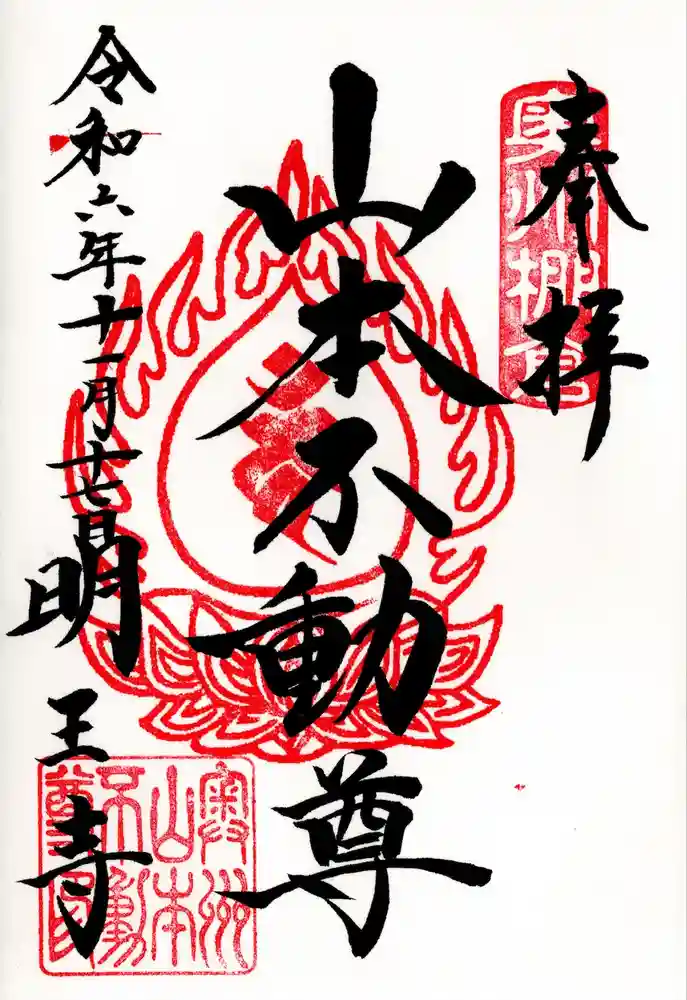 奉拝
奥州棚倉
山本不動尊
令和六年十一月十七日
明王寺
奥州
山本
不動